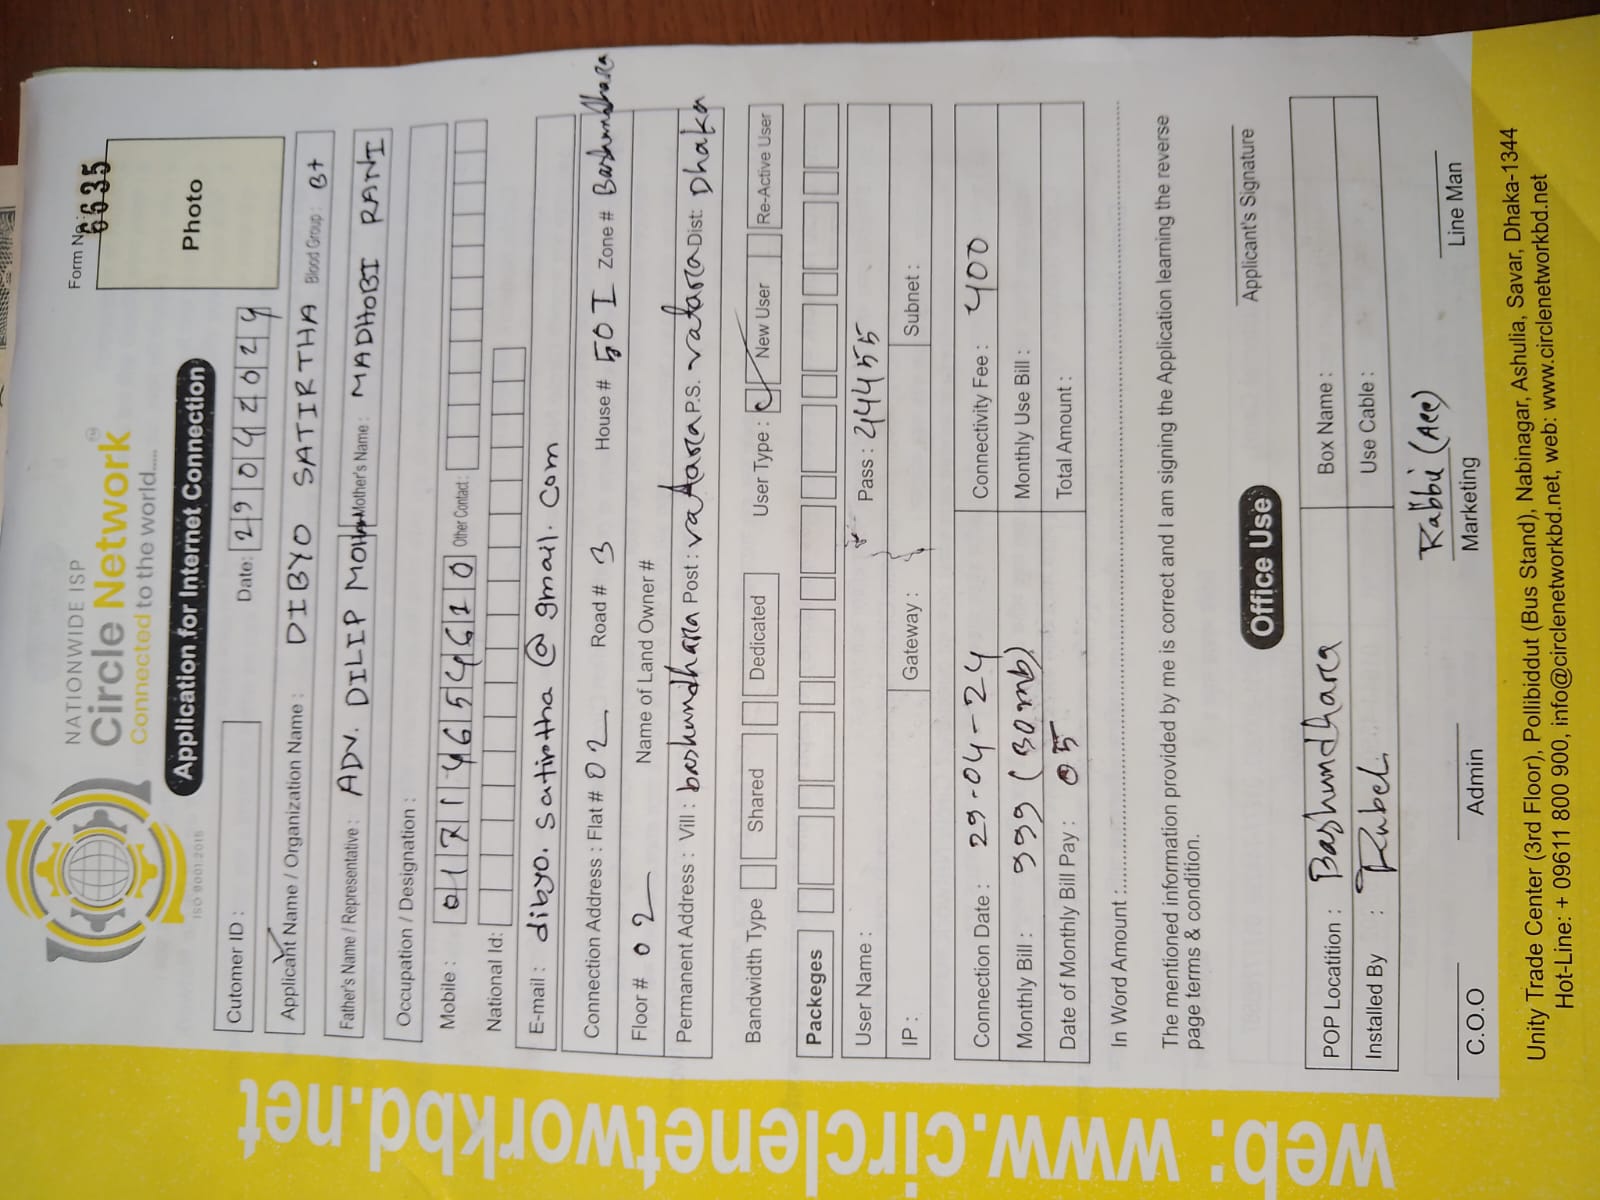 NATIONWIDE ISP
Circle Network
Connected to the world.....
ISO 9001:2015
Form No. 6635
Photo
Application for Internet Connection
Cutomer ID : Date: 29042024
Applicant Name / Organization Name : DIBYO SATIRTHA Blood Group : B+
Father's Name / Representative : ADV. DILIP Mother's Name : MADHOBI RANI
Occupation / Designation :
Mobile : 017114654610 Other Contact :
National Id:
E-mail : dibyo.satirtha@gmail.com
Connection Address : Flat # 02 Road # 3 House # 501 Zone # Bashundhara
Floor # 02 Name of Land Owner #
Permanent Address : Vill : bashundhara Post : vatara P.S. vatara Dist: Dhaka
Bandwidth Type Shared Dedicated User Type : New User Re-Active User
Packeges
User Name : Pass : 24455
IP : Gateway : Subnet :
Connection Date : 29-04-24 Connectivity Fee : 400
Monthly Bill : 999 (30mb) Monthly Use Bill :
Date of Monthly Bill Pay : 05 Total Amount :
In Word Amount :
The mentioned information provided by me is correct and I am signing the Application learning the reverse
page terms & condition.
Applicant's Signature
Office Use
POP Locatition : Bashundhara Box Name :
Installed By : Rubel Use Cable :
Rabbi (Acc)
C.O.O Admin Marketing Line Man
Unity Trade Center (3rd Floor), Pollibiddut (Bus Stand), Nabinagar, Ashulia, Savar, Dhaka-1344
Hot-Line: + 09611 800 900, info@circlenetworkbd.net, web: www.circlenetworkbd.net
web: www.circlenetworkbd.net